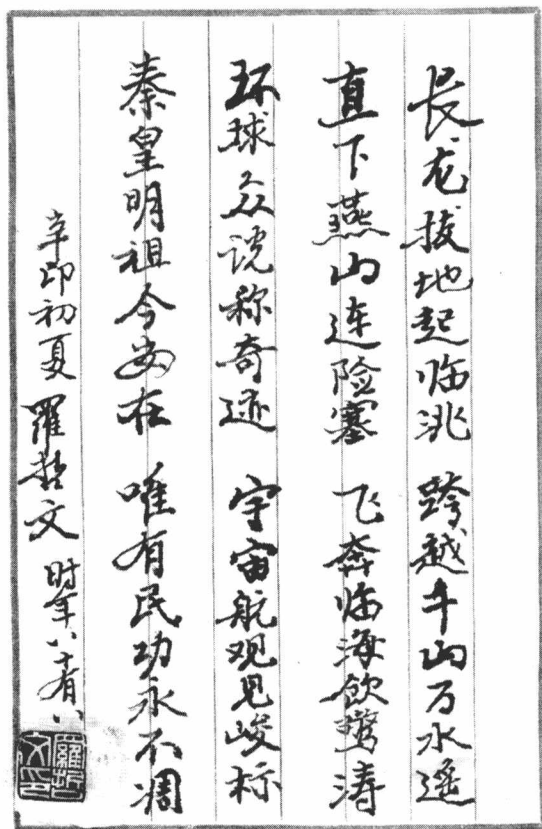 長龙拔地起临洮 跨越千山万水遥
直下燕山连险塞 飞奔临海饮惊涛
环球众说称奇迹 宇宙航观见峻标
秦皇明祖今安在 唯有民功永不凋
辛卯初夏 羅哲文 时年八十有八
羅哲文印